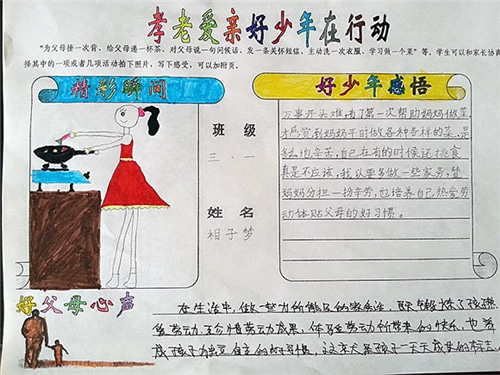 孝老爱亲好少年在行动
“为父母捶一次背、给父母递一杯茶、对父母说一句问候话、发一条关怀短信、主动洗一次衣服、学习做一个菜”等,学生可以和家长协商选
择其中的一项或者几项活动拍下照片,写下感受,可以加附页。
精彩瞬间
班级
三、一
姓名
相子梦
好少年感悟
万事开头难,有了第一次帮助妈妈做菜,
才感觉到妈妈平时做各种各样的菜,是
多么地辛苦,自己在有的时候还挑食
真是不应该,我以后要多做一些家务,替
妈妈分担一份辛劳,也培养自己热爱劳
动体贴父母的好习惯。
好父母心声
在生活中,做一些力所能及的家务活,既锻炼了孩子
劳动,珍惜劳动成果,体验劳动所带来的快乐,也养
成孩子自立的好习惯,这真是孩子一天天成长的标志。